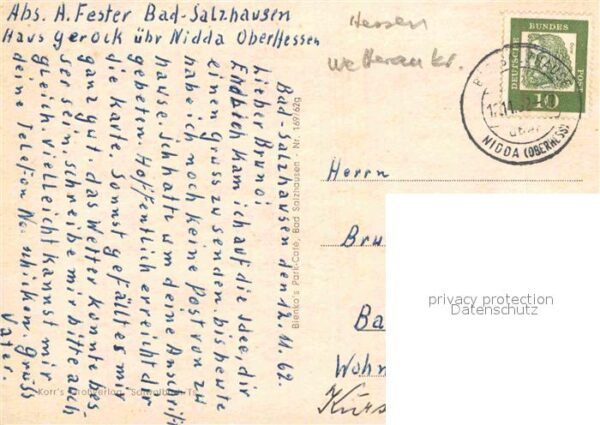 Abs. A. Fester Bad-Salzhausen
Haus Gerock übr Nidda OberHessen
Hessen
Wetterau kr.
DEUTSCHE BUNDES POST
10
NIDDA (OBERHESS)
Bad-Salzhausen den 12. 11. 62.
Lieber Bruno!
Endlich kam ich auf die Idee, dir
einen gruss zu senden. bis heute
habe ich noch keine Post von zu
hause. Ich hatte um deine Anschrift
gebeten. Hoffentlich erreicht dir
die Karte. Sonst gefällt es mir
ganz gut. das Wetter könnte bes
ser sein. schreibe mir bitte auch
gleich. vielleicht kannst mir
deine Telefon No. schicken. gruss
Vater.
Bienko's Park-Café, Bad Salzhausen - Nr. 169/62g
Herrn
Bru
Ba
Wohn
Kurs
privacy protection
Datenschutz
Korr's